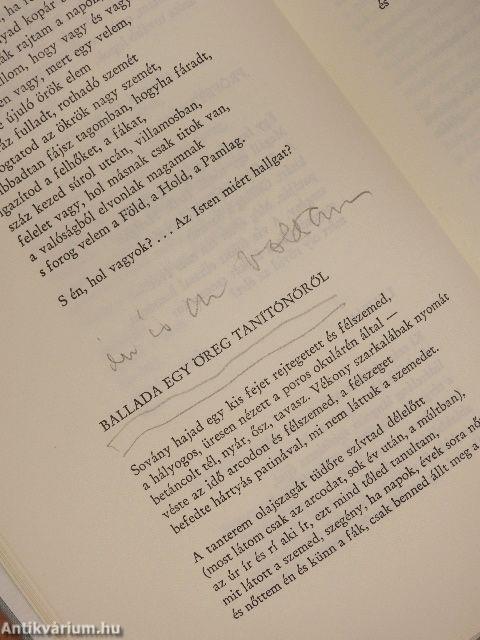 , ha
nyad kopár é
ák rajtam a napok
llom, hogy vagy és vagy
en vagy, mert egy velem,
e újuló örök elem
áz fulladt, rothadó szemét
ogtatod az ökrök nagy szemét,
bbadtan fájsz tagomban, hogyha fáradt,
igazítod a felhőket, a fákat,
száz kezed súrol utcán, villamosban,
felelet vagy, hol másnak csak titok van,
a valóságból elvonlak magamnak
s forog velem a Föld, a Hold, a Pamlag.
S én, hol vagyok? . . . Az Isten miért hallgat?
én is voltam
BALLADA EGY ÖREG TANÍTÓNŐRŐL
Sovány hajad egy kis fejet rejtegetett és félszemed,
a hályogos, üresen nézett a poros okulárén által —
betáncolt tél, nyár, ősz, tavasz. Vékony szarkalábak nyomát
véste az idő arcodon és félszemed, a félszeget
befedte hártyás patinával, mi nem láttuk a szemedet.
A tanterem olajszagát tüdőre szívtad délelőtt
(most látom csak az arcodat, sok év után, a múltban),
az úr ír és rí aki ír, ezt mind tőled tanultam,
mit látott a szemed, szegény, ha napok, évek sora nő
és nőttem én és künn a fák, csak benned állt meg a
és
Antikvárium.hu